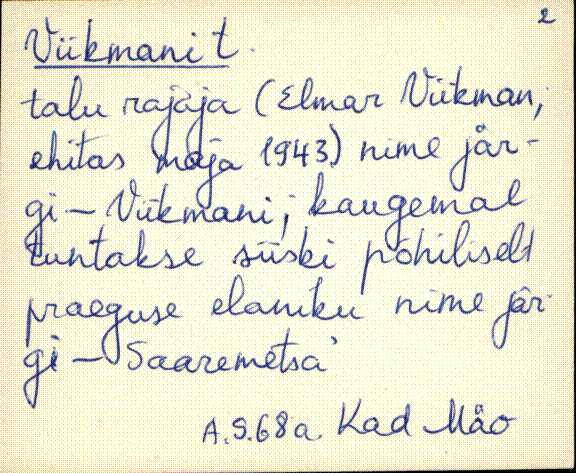 2
Viikmani t.
talu rajaja (Elmar Viikman,
ehitas maja 1943) nime jär-
gi – Viikmani; kaugemal
tuntakse siiski põhiliselt
praeguse elaniku nime jär-
gi – Saaremetsa'
A.S. 68a. Kad Mäo